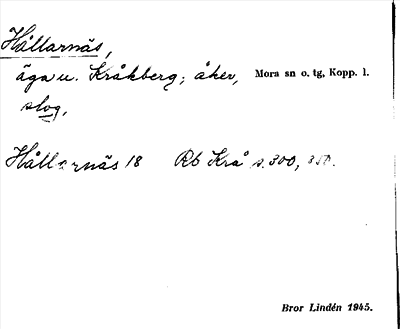 Hållarnäs,
ägau. Kråkberg; åker, Mora sn o. tg, Kopp. l.
slog,
Hållarnäs 18 Rb Krå s. 300, 350.
Bror Lindén 1945.